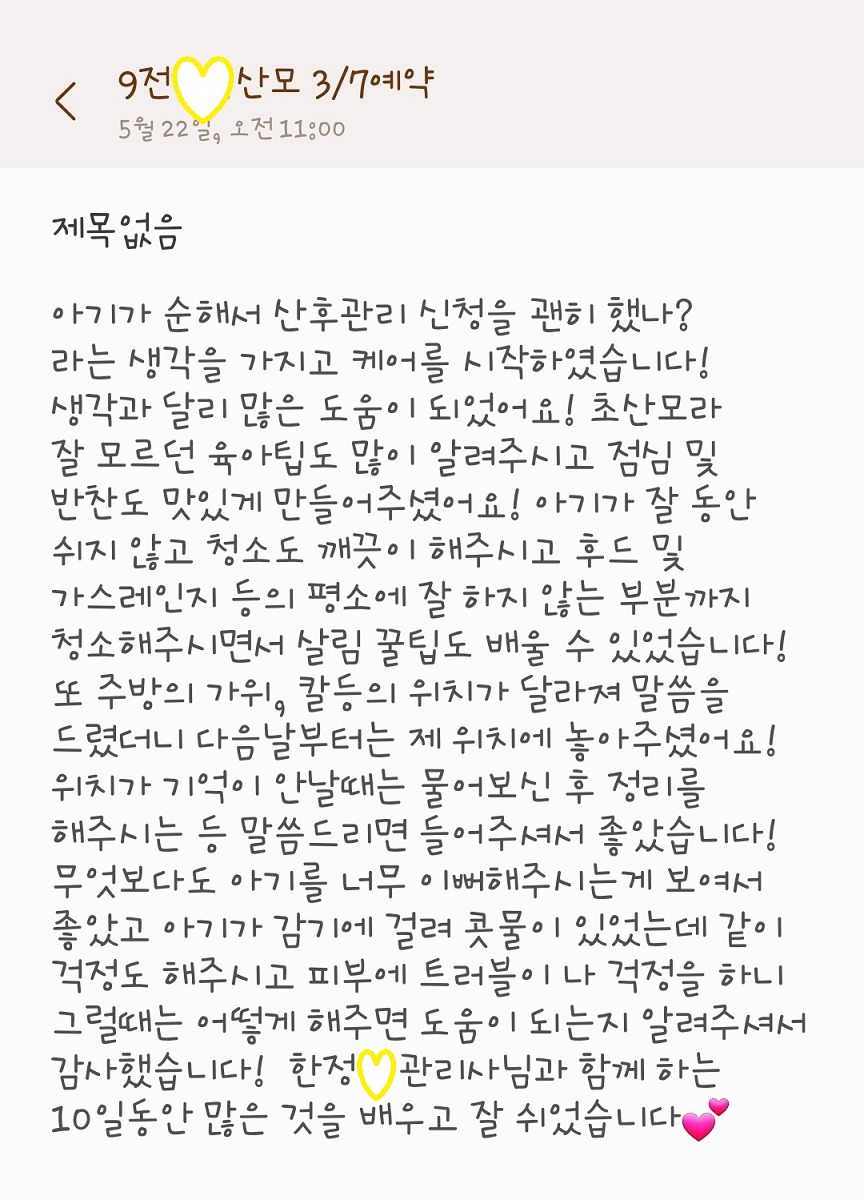 9전 산모 3/7예약
5월 22일, 오전 11:00
제목없음
아기가 순해서 산후관리 신청을 괜히 했나?
라는 생각을 가지고 케어를 시작하였습니다!
생각과 달리 많은 도움이 되었어요! 초산모라
잘 모르던 육아팁도 많이 알려주시고 점심 및
반찬도 맛있게 만들어주셨어요! 아기가 잘 동안
쉬지 않고 청소도 깨끗이 해주시고 후드 및
가스레인지 등의 평소에 잘 하지 않는 부분까지
청소해주시면서 살림 꿀팁도 배울 수 있었습니다!
또 주방의 가위, 칼등의 위치가 달라져 말씀을
드렸더니 다음날부터는 제 위치에 놓아주셨어요!
위치가 기억이 안날때는 물어보신 후 정리를
해주시는 등 말씀드리면 들어주셔서 좋았습니다!
무엇보다도 아기를 너무 이뻐해주시는게 보여서
좋았고 아기가 감기에 걸려 콧물이 있었는데 같이
걱정도 해주시고 피부에 트러블이 나 걱정을 하니
그럴때는 어떻게 해주면 도움이 되는지 알려주셔서
감사했습니다! 한정 관리사님과 함께 하는
10일동안 많은 것을 배우고 잘 쉬었습니다💕